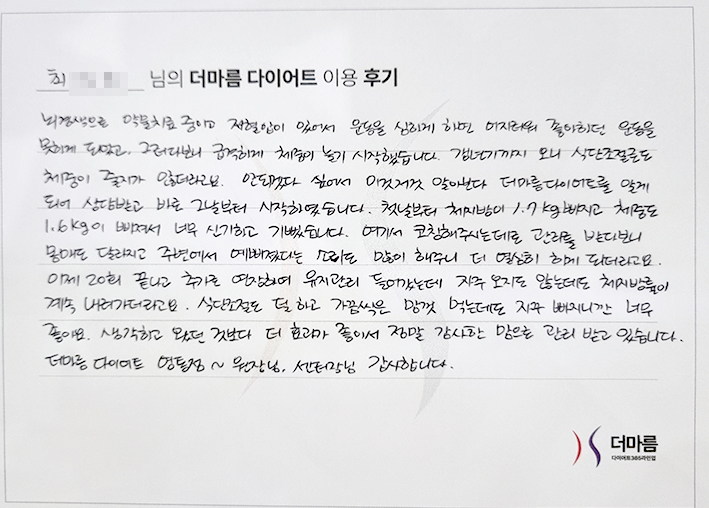 최 님의 더마름 다이어트 이용 후기
뇌경색으로 약물치료 중이고 저혈압이 있어서 운동을 심하게 하면 어지러워 좋아하던 운동을
못하게 되었고, 그러다보니 급격하게 체중이 늘기 시작했습니다. 갱년기까지 오니 식단조절로도
체중이 줄지가 않더라고요. 안되겠다 싶어서 이것저것 알아보다 더마름다이어트를 알게
되어 상담받고 바로 그날부터 시작하였습니다. 첫날부터 체지방이 1.7kg빠지고 체중도
1.6kg이 빠져서 너무 신기하고 기뻤습니다. 여기서 코칭해주시는데로 관리를 받다보니
몸매도 달라지고 주변에서 예뻐졌다는 소리도 많이 해주니 더 열심히 하게 되더라고요.
이제 20회 끝나고 추가로 연장하여 유지관리 들어갔는데 자주 오지도 않는데도 체지방률이
계속 내려가더라고요. 식단조절도 덜 하고 가끔씩은 맘껏 먹는데도 자꾸 빠지니깐 너무
좋아요. 생각하고 왔던 것보다 더 효과가 좋아서 정말 감사한 맘으로 관리 받고 있습니다.
더마름 다이어트 영통점~ 원장님, 센터장님 감사합니다.
더마름
다이어트365라인업